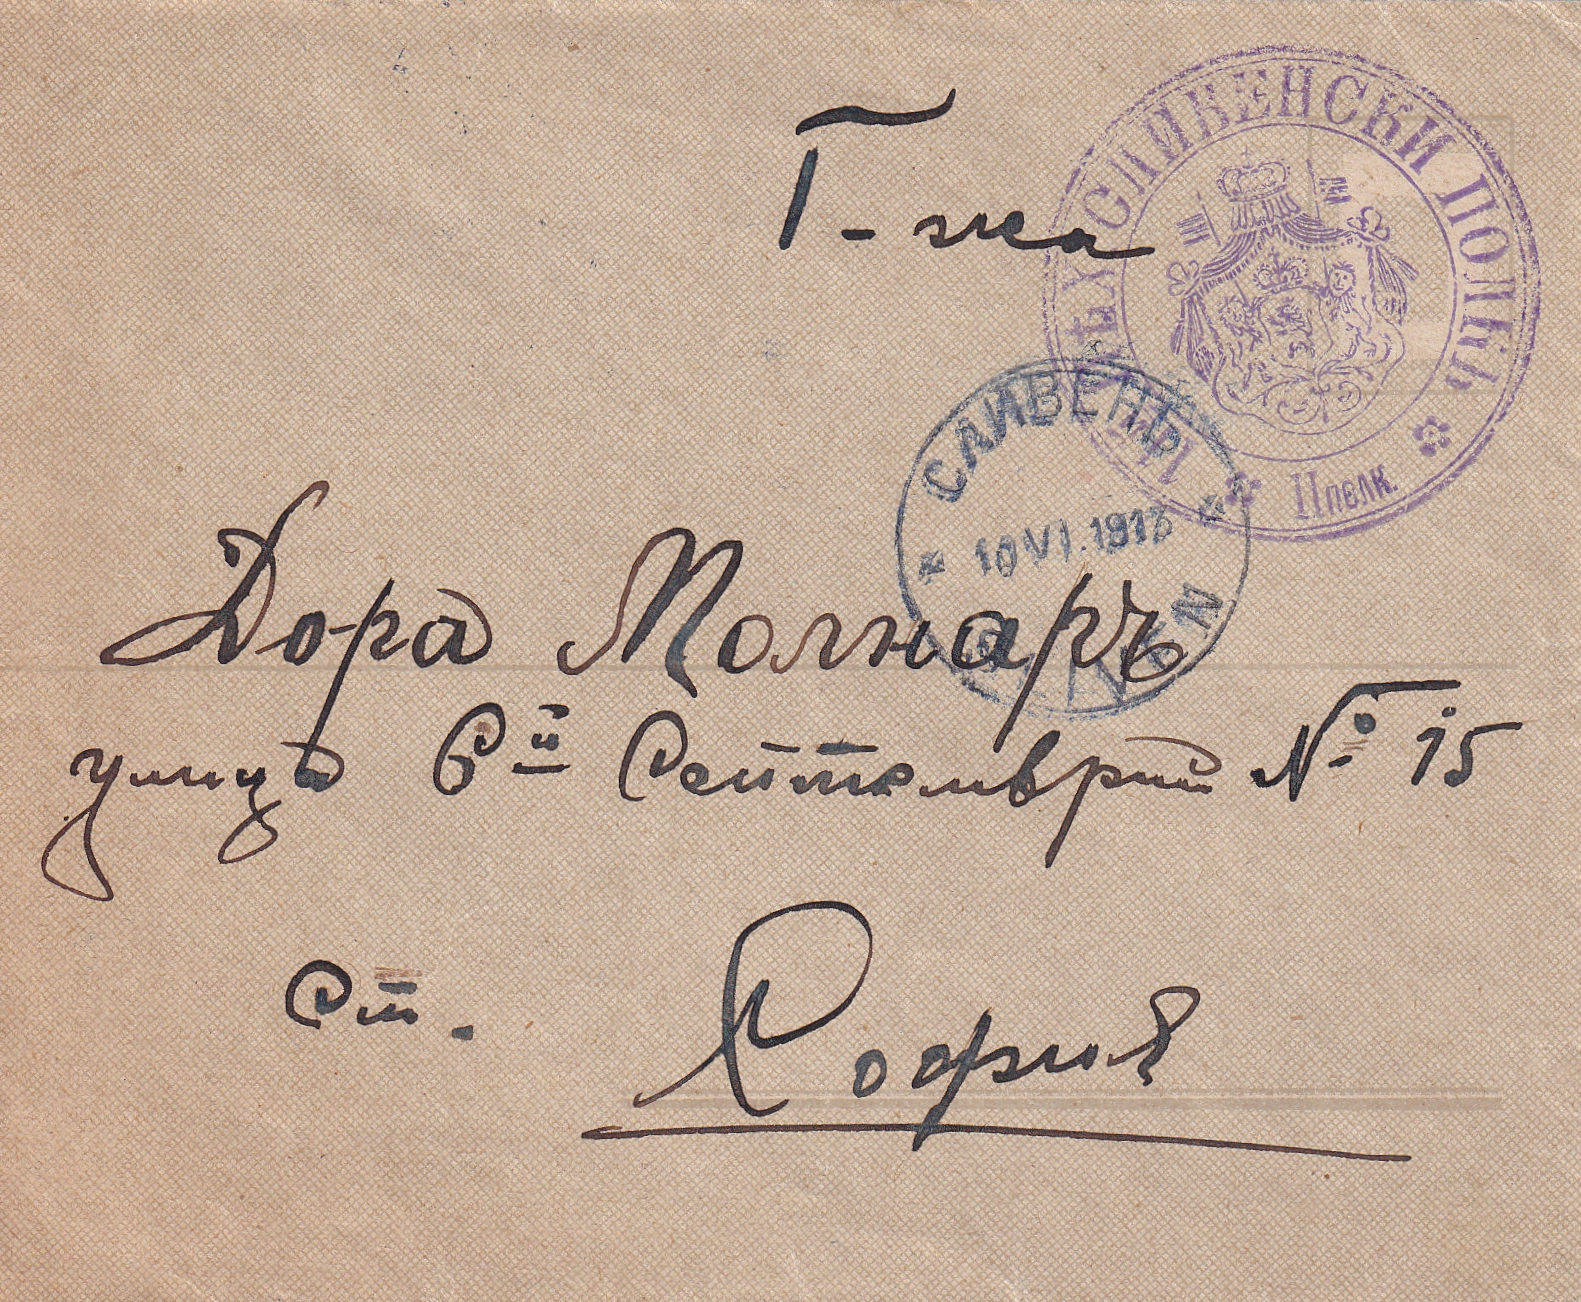 Г-жа
СЛИВЕНСКИ ПОЛКЪ
II ПОЛК.
СЛИВЕНЪ
10 VI.1913
SLIVEN
Дора Молнаръ
улица 6ий Септемврий № 15
Ст. София